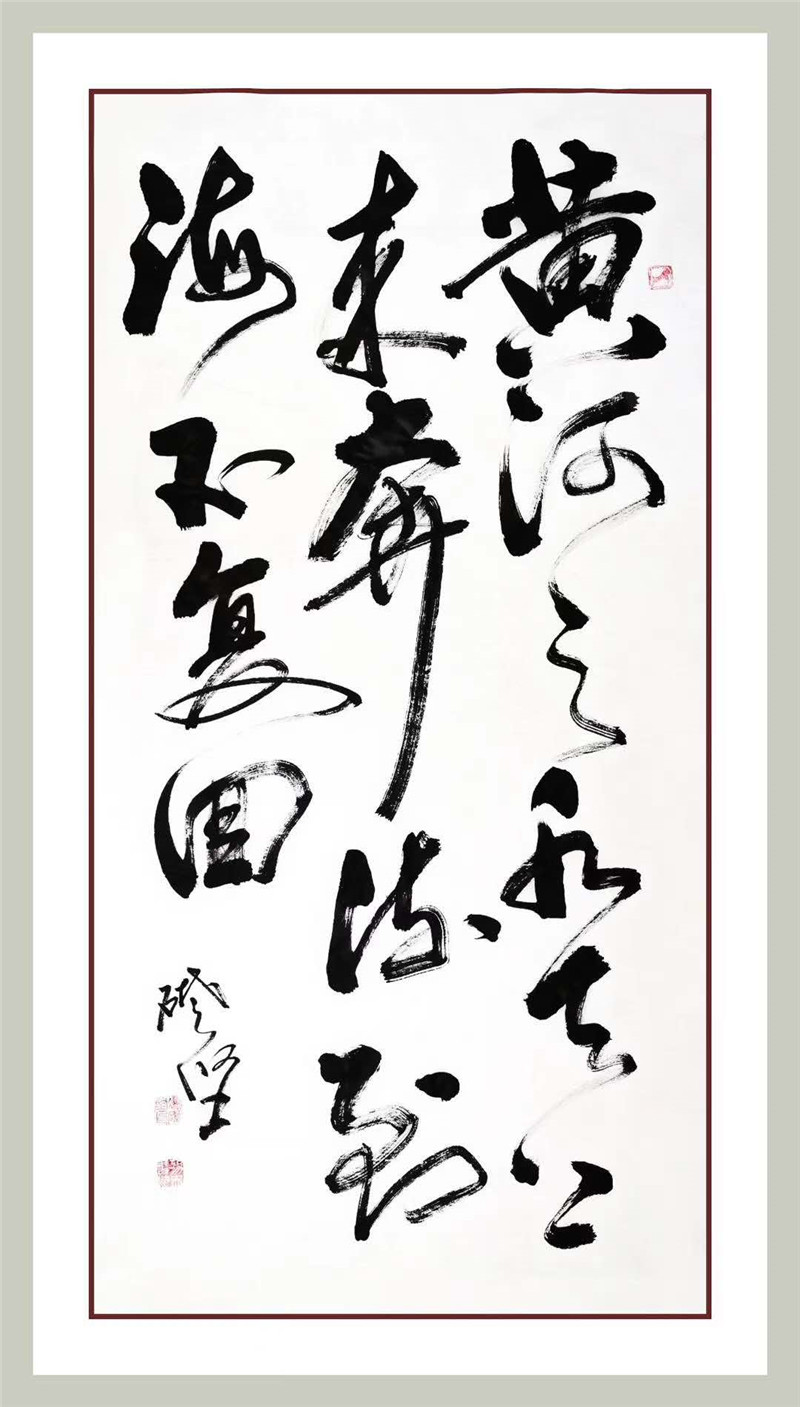 黄河之水天上
来奔流到
海不复回